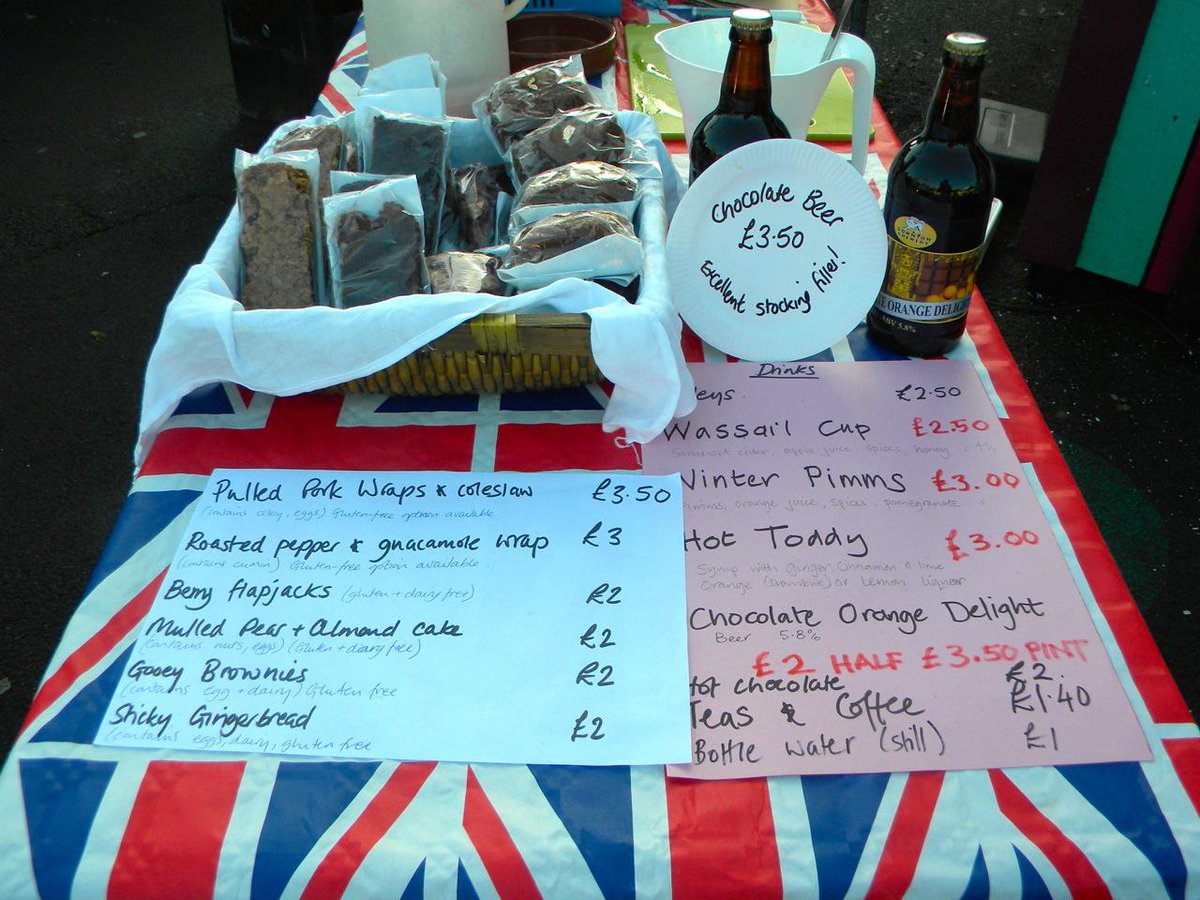 Chocolate Beer
£3.50
Excellent stocking filler!
ORANGE DELIG
ABV 5.8%
Drinks
£2.50
Wassail Cup £2.50
Somerset cider, apple juice, spices, honey
Winter Pimms £3.00
Pimms, orange juice, spices, pomegranate
Hot Toddy £3.00
Syrup with Ginger Cinnamon n lime
Orange (Drambuie) or Lemon Liqueur
Chocolate Orange Delight
Beer 5.8%
£2 HALF £3.50 PINT
Hot chocolate £2
Teas & Coffee £1.40
Bottle water (still) £1
Pulled Pork Wraps & coleslaw £3.50
(contains celery, eggs) Gluten-free option available
Roasted pepper & guacamole wrap £3
(contains cumin) Gluten-free option available.
Berry flapjacks (gluten + dairy free) £2
Mulled Pear + Almond cake £2
(contains nuts, eggs) (Gluten + dairy free)
Gooey Brownies £2
(contains egg + dairy) Gluten free
Sticky Gingerbread £2
(contains eggs, dairy, gluten free